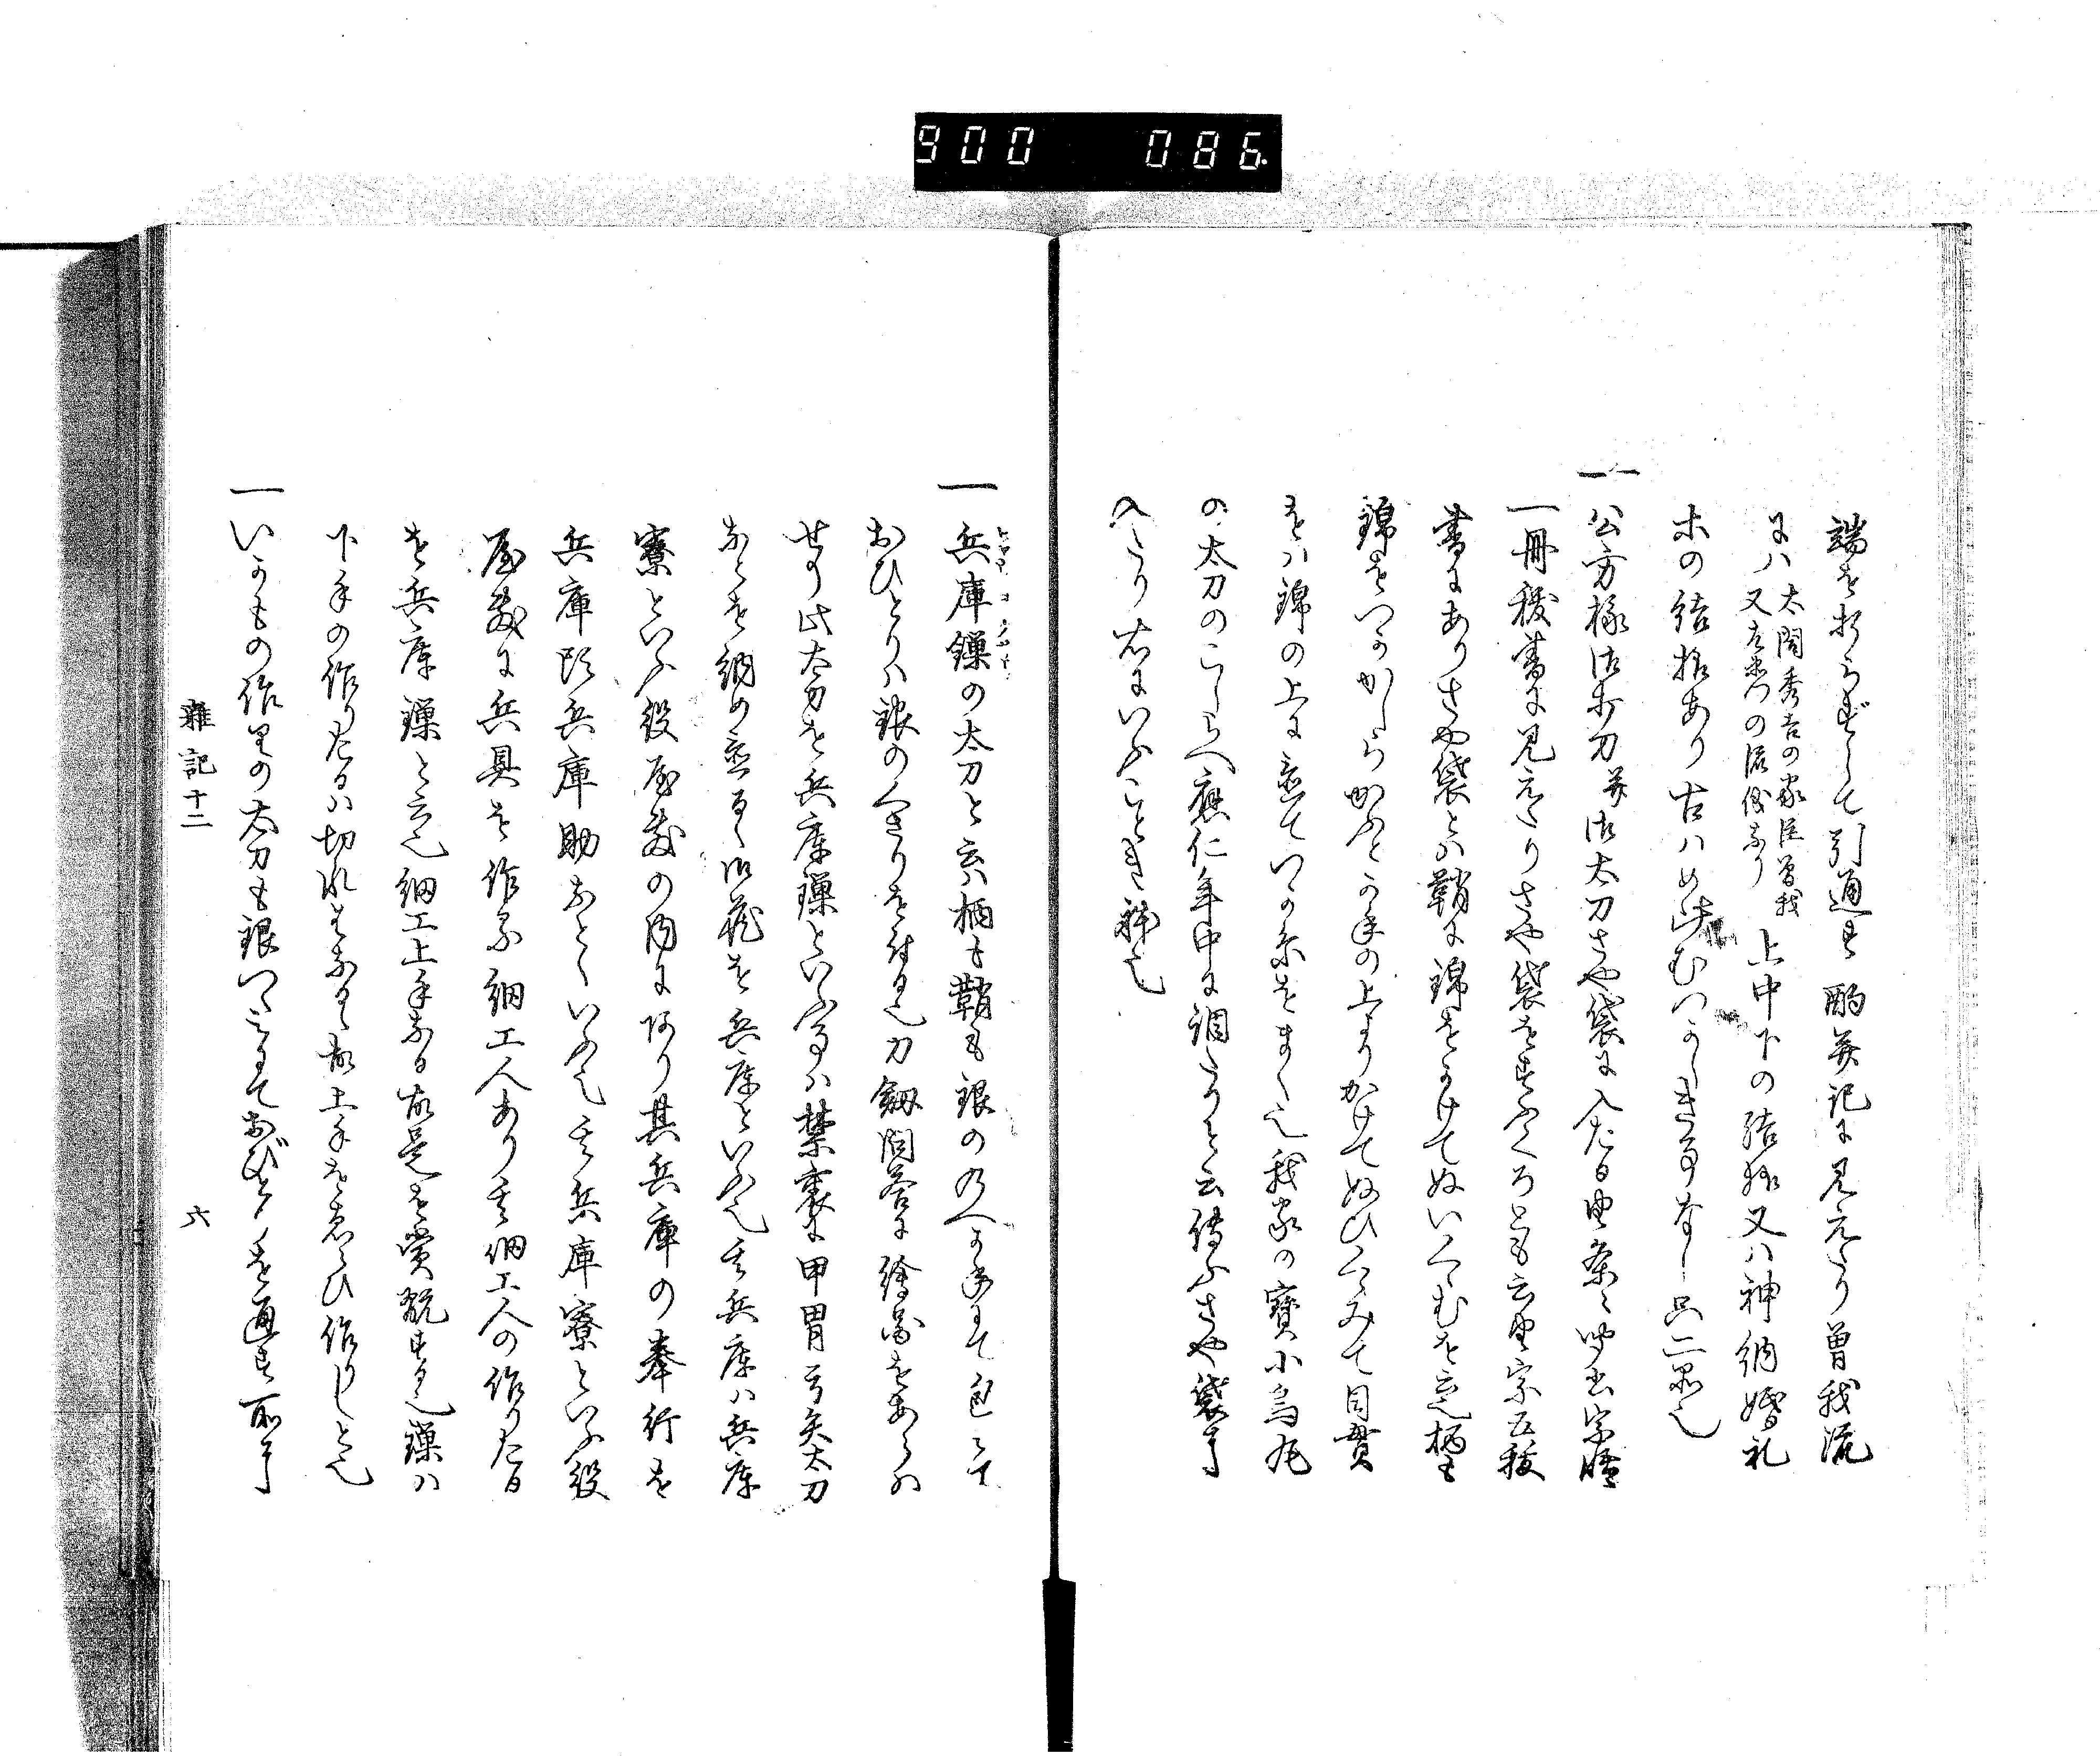 900 086.
端を折らずして引通す 酌并記に見えたり曽我流
には
太閤秀吉の家臣曽我
又左衛門の流儀なり
上中下の結様又ハ神納婚礼
木の結様あり古ハ
むつかしき事なし只二品也
一公方様御打刀并御太刀さや袋に入たる由条々聞書宗
一冊
書に見えたりさや袋をすふくろとも云由宗五
書にありさや袋とハ鞘に錦をかけてぬいくゝむを云柄も
錦をつかがしらかぶとかねの上よりかけてぬひくゝみて目貫
をハ錦の上に置ていつか糸をまく也我家の寳小烏丸
の太刀のこしらへ應仁年中に調たりと云傳ふさや袋
入たり右にいふことき躰也
一兵庫鏁の太刀と云ハ柄も鞘も銀のべかねにて包みて
おびとりハ銀のくさりを付る也刀劔問答に繪図をあらハ
せり此太刀を兵庫鏁といふ事ハ禁裏に甲冑弓矢太刀
なとを納め置るゝ御蔵を兵庫といふ也其兵庫ハ兵庫
寮といふ役屋敷の内にあり其兵庫の奉行を
兵庫頭兵庫助なとゝいふ也其兵庫寮といふ役
屋敷に兵具を作る細工人あり其細工人の作りたる
を兵庫鏁と云也細工上手なる故是を賞翫する也鏁ハ
下手の作りたるハ切れそなる故上手をゑらひ作りしと也
一いかもの作りの太刀も銀つゝみにておびとりを通す所
雜記十二
六